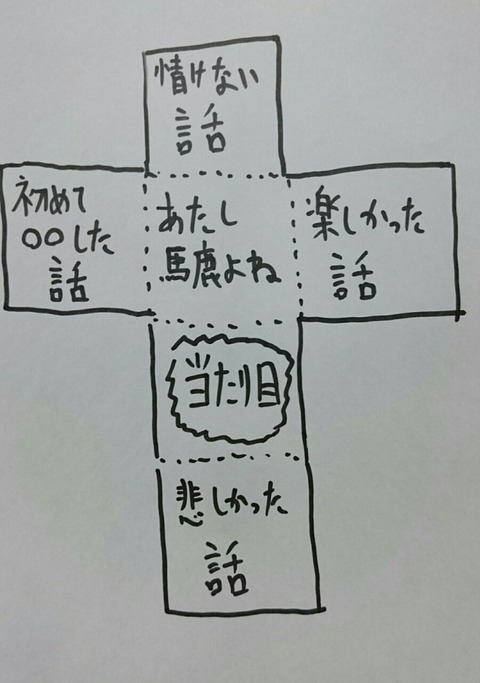 情けない
話
初めて
○○した
話
あたし
馬鹿よね
楽しかった
話
当たり目
悲しかった
話